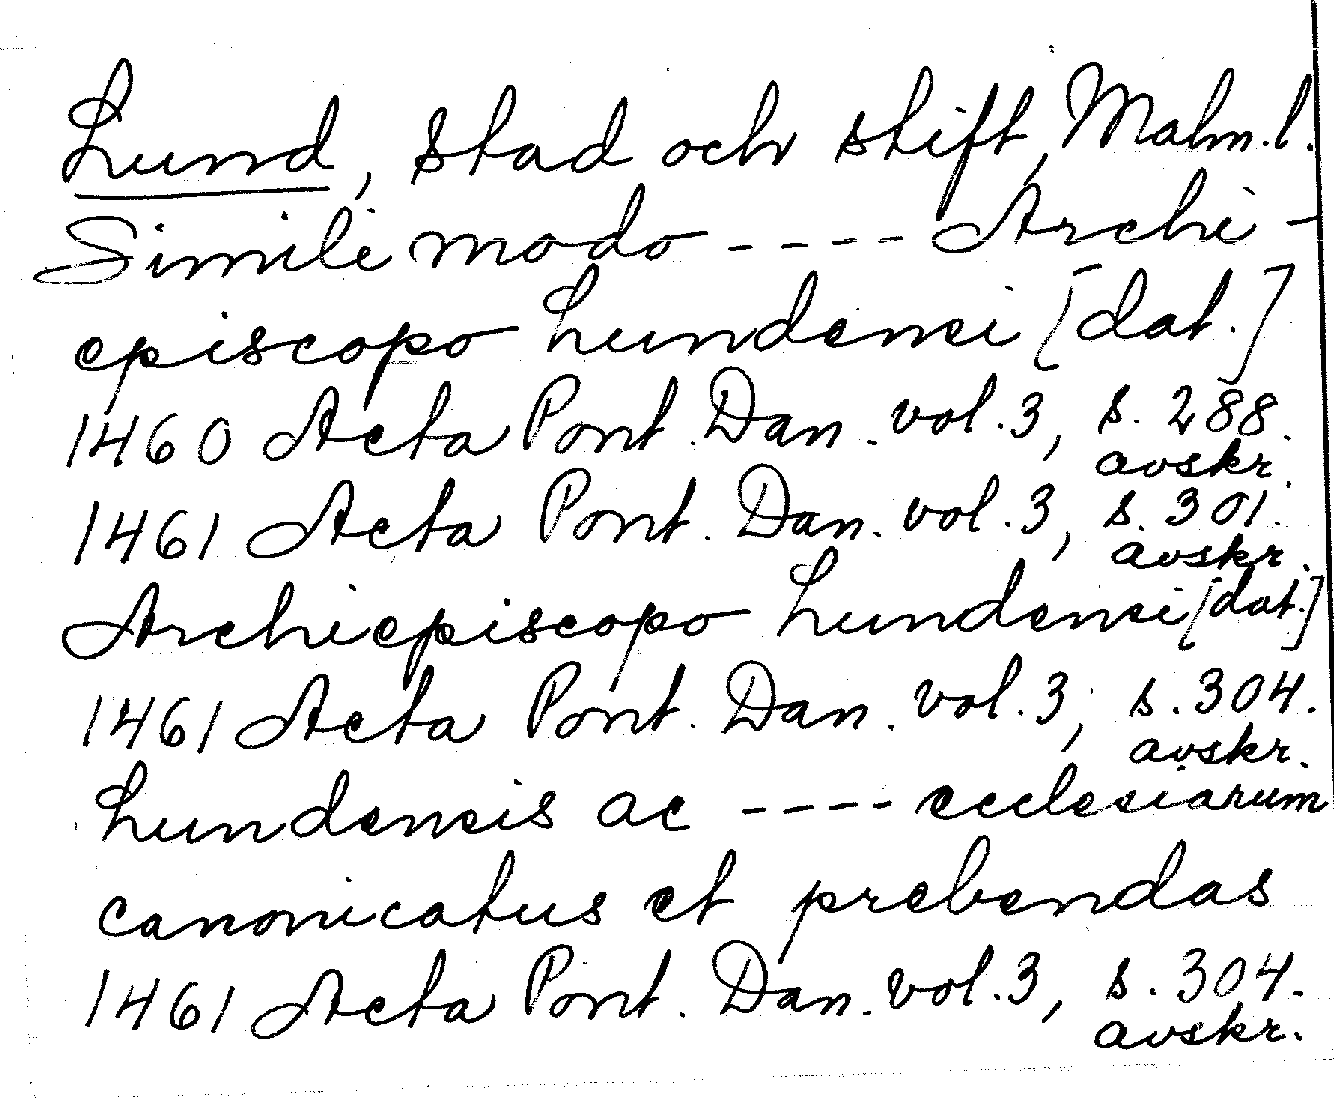 Lund, stad och stift, Malm.l.
Simili modo ---- Archi-
episcopo Lundensi [dat.]
1460 Acta Pont. Dan. vol. 3, s. 288.
avskr.
1461 Acta Pont. Dan. vol. 3, s. 301.
avskr.
Archiepiscopo Lundensi [dat.]
1461 Acta Pont. Dan. vol. 3, s. 304.
avskr.
Lundensis ac ---- ecclesiarum
canonicatus et prebendas
1461 Acta Pont. Dan. vol. 3, s. 304.
avskr.